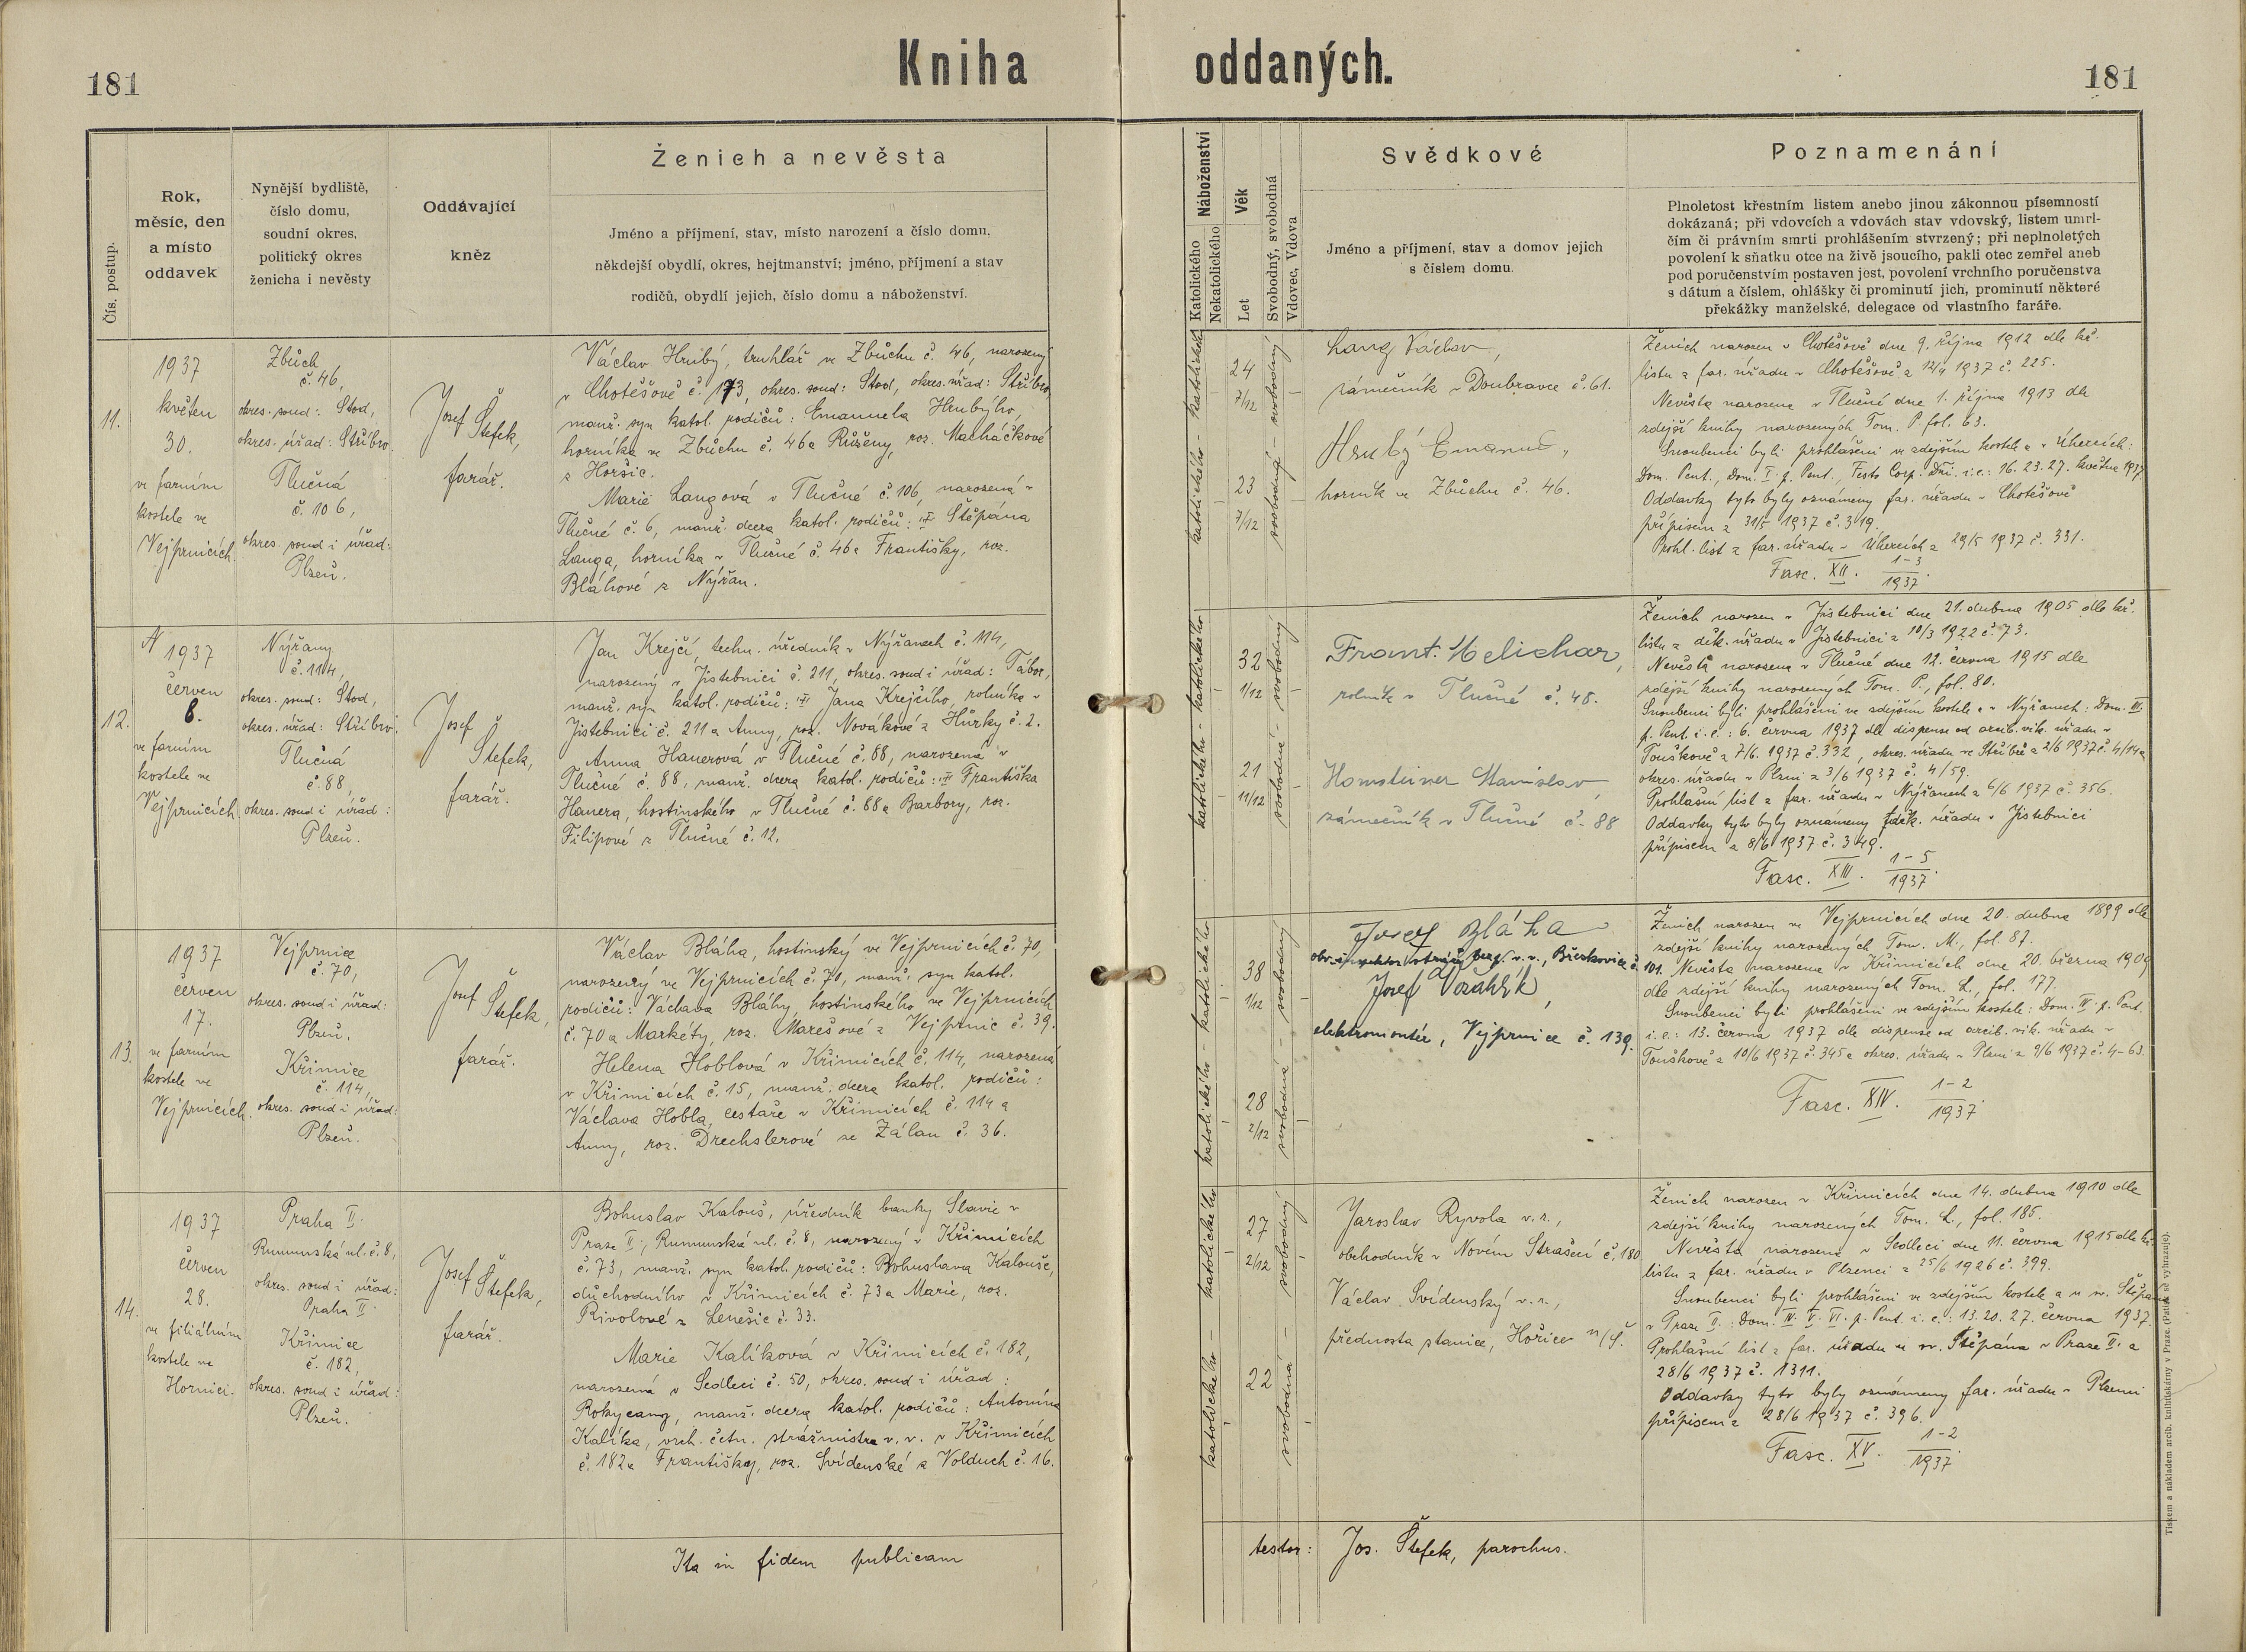 181
Kniha oddaných.
181
Čís. postup.
Rok,
měsíc, den
a místo
oddavek
Nynější bydliště,
číslo domu,
soudní okres,
politický okres
ženicha i nevěsty
Oddávající
kněz
Ženich a nevěsta
Jméno a příjmení, stav, místo narození a číslo domu,
někdejší obydlí, okres, hejtmanství; jméno, příjmení a stav
rodičů, obydlí jejich, číslo domu a náboženství.
Náboženství
Katolického
Nekatolického
Věk
Let
Svobodný, svobodná
Vdovec, Vdova
Svědkové
Jméno a příjmení, stav a domov jejich
s číslem domu.
Poznamenání
Plnoletost křestním listem anebo jinou zákonnou písemností
dokázaná; při vdovcích a vdovách stav vdovský, listem umrl-
čím či právním smrti prohlášením stvrzený; při neplnoletých
povolení k sňatku otce na živě jsoucího, pakli otec zemřel aneb
pod poručenstvím postaven jest, povolení vrchního poručenstva
s dátum a číslem, ohlášky či prominutí jich, prominutí některé
překážky manželské, delegace od vlastního faráře.
11.
1937
květen
30.
ve farním
kostele ve
Vejprnicích.
Zbůch
č. 46,
okres. soud: Stod,
okres. úřad: Stříbro.
Tlučná
č. 106,
okres. soud i úřad:
Plzeň.
Josef
Štefek,
farář.
Václav Hrubý, truhlář ve Zbůchu č. 46, narozený
v Chotěšově č. 173, okres. soud: Stod, okres. úřad: Stříbro,
manž. syn katol. rodičů: Emanuela Hrubýho,
horníka ve Zbůchu č. 46 a Růženy, roz. Macháčkové
z Horšic.
Marie Langová v Tlučné č. 106, narozená v
Tlučné č. 6, manž. dcera katol. rodičů: Štěpána
Langa, horníka v Tlučné č. 46 a Františky, roz.
Bláhové z Nýřan.
katolického - katolického
24
7/12
23
7/12
svobodná - svobodný
Lang Václav,
zámečník v Doubravce č. 61.
Hrubý Emanuel,
horník ve Zbůchu č. 46.
Ženich narozen v Chotěšově dne 9. října 1912 dle kř.
listu z far. úřadu v Chotěšově z 12/4 1937 č. 225.
Nevěsta narozena v Tlučné dne 1. října 1913 dle
zdejší knihy narozených Tom. P. fol. 63.
Snoubenci byli prohlášeni ve zdejším kostele a v Úhercích:
Dom. Pent., Dom. I. p. Pent., Festo Corp. Dni. i. e.: 16. 23. 27. května 1937.
Oddavky tyto byly oznámeny far. úřadu v Chotěšově
přípisem z 31/5 1937 č. 319.
Prohl. list z far. úřadu v Úhercích z 29/5 1937 č. 331.
Fasc. XII. 1-3
1937.
12.
1937
červen
8.
ve farním
kostele ve
Vejprnicích
Nýřany
č. 1114,
okres. soud: Stod,
okres. úřad: Stříbro.
Tlučná
č. 88,
okres. soud i úřad:
Plzeň.
Josef
Štefek,
farář.
Jan Krejčí, techn. úředník v Nýřanech č. 1114,
narozený v Jistebnici č. 211, okres. soud i úřad: Tábor,
manž. syn katol. rodičů: Jana Krejčího, rolníka v
Jistebnici č. 211 a Anny, roz. Novákové z Hůrky č. 2.
Anna Hanerová v Tlučné č. 88, narozená v
Tlučné č. 88, manž. dcera katol. rodičů: Františka
Hanera, hostinského v Tlučné č. 88 a Barbory, roz.
Filipové z Tlučné č. 12.
katolického - katolického
32
1/12
21
11/12
svobodná - svobodný
Frant. Melichar,
rolník v Tlučné č. 48.
Homsteiner Stanislav,
zámečník v Tlučné č. 88
Ženich narozen v Jistebnici dne 21. dubna 1905 dle kř.
listu z děk. úřadu v Jistebnici z 10/3 1922 č. 73.
Nevěsta narozena v Tlučné dne 12. června 1915 dle
zdejší knihy narozených Tom. P., fol. 80.
Snoubenci byli prohlášeni ve zdejším kostele a v Nýřanech: Dom. III.
p. Pent. i. e.: 6. června 1937 dle dispense od arcib. vik. úřadu v
Touškově z 7/6. 1937 č. 332, okres. úřadu ve Stříbře z 2/6 1937 č. 4/14 a
okres. úřadu v Plzni z 3/6 1937 č. 4/59.
Prohlašní list z far. úřadu v Nýřanech z 6/6 1937 č. 356.
Oddavky tyto byly oznámeny děk. úřadu v Jistebnici
přípisem z 8/6 1937 č. 349.
Fasc. XIII. 1-5
1937.
13.
1937
červen
17.
ve farním
kostele ve
Vejprnicích.
Vejprnice
č. 70,
okres. soud i úřad:
Plzeň.
Křimice
č. 114,
okres. soud i úřad:
Plzeň.
Josef
Štefek,
farář.
Václav Bláha, hostinský ve Vejprnicích č. 70,
narozený ve Vejprnicích č. 70, manž. syn katol.
rodičů: Václava Bláhy, hostinského ve Vejprnicích
č. 70 a Markéty, roz. Marešové z Vejprnic č. 39.
Helena Hoblová v Křimicích č. 114, narozená
v Křimicích č. 15, manž. dcera katol. rodičů:
Václava Hobla, cestáře v Křimicích č. 114 a
Anny, roz. Drechslerové ze Zálan č. 36.
katolického - katolického
38
1/12
28
2/12
svobodná - svobodný
Josef Bláha
v. v., Břeskovice č. 101.
Josef Vozahlík,
elektromontér, Vejprnice č. 139.
Ženich narozen ve Vejprnicích dne 20. dubna 1899 dle
zdejší knihy narozených Tom. M., fol. 87.
Nevěsta narozena v Křimicích dne 20. března 1909
dle zdejší knihy narozených Tom. L., fol. 177.
Snoubenci byli prohlášeni ve zdejším kostele: Dom. IV. p. Pent.
i. e.: 13. června 1937 dle dispense od arcib. vik. úřadu v
Touškově z 10/6 1937 č. 345 a okres. úřadu v Plzni z 9/6 1937 č. 4-63.
Fasc. XIV. 1-2
1937.
14.
1937
červen
28.
ve filiálním
kostele ve
Hornici.
Praha II.
Rumunská ul. č. 8,
okres. soud i úřad:
Praha II.
Křimice
č. 182,
okres. soud i úřad:
Plzeň.
Josef
Štefek,
farář.
Bohuslav Kalouš, úředník banky Slavie v
Praze II., Rumunská ul. č. 8, narozený v Křimicích
č. 73, manž. syn katol. rodičů: Bohuslava Kalouše,
důchodního v Křimicích č. 73 a Marie, roz.
Rivolové z Lenešic č. 33.
Marie Kalíková v Křimicích č. 182,
narozená v Sedleci č. 50, okres. soud i úřad:
Rokycany, manž. dcera katol. rodičů: Antonína
Kalíka, vrch. četn. strážmistra v. v. v Křimicích
č. 182 a Františky, roz. Svídenské z Volduch č. 16.
katolického - katolického
27
2/12
22
svobodná - svobodný
Jaroslav Ryvola v. r.,
obchodník v Novém Strašecí č. 180
Václav Svídenský v. r.,
přednosta stanice, Hořice n/Š.
Ženich narozen v Křimicích dne 14. dubna 1910 dle
zdejší knihy narozených Tom. L., fol. 185.
Nevěsta narozena v Sedleci dne 11. června 1915 dle kř.
listu z far. úřadu v Plzenci z 25/6 1926 č. 399.
Snoubenci byli prohlášeni ve zdejším kostele a u sv. Štěpána
v Praze II.: Dom. IV. V. VI. p. Pent. i. e.: 13. 20. 27. června 1937.
Prohlašní list z far. úřadu u sv. Štěpána v Praze II. z
28/6 1937 č. 1311.
Oddavky tyto byly oznámeny far. úřadu v Plzenci
přípisem z 28/6 1937 č. 396.
Fasc. XV. 1-2
1937.
Ita in fidem publicam
testor: Jos. Štefek, parochus.
Tiskem a nákladem arcib. knihtiskárny v Praze. (Patisk se vyhrazuje).